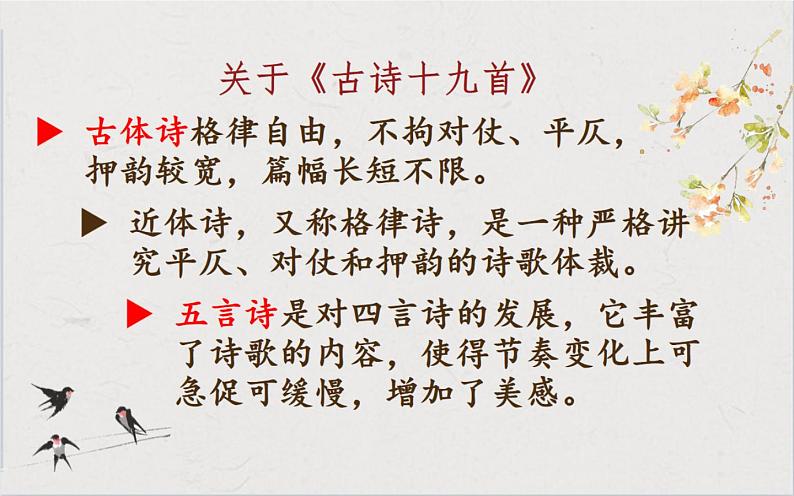 关于《古诗十九首》
古体诗格律自由，不拘对仗、平仄，
押韵较宽，篇幅长短不限。
近体诗，又称格律诗，是一种严格讲
究平仄、对仗和押韵的诗歌体裁。
五言诗是对四言诗的发展，它丰富
了诗歌的内容，使得节奏变化上可
急促可缓慢，增加了美感。